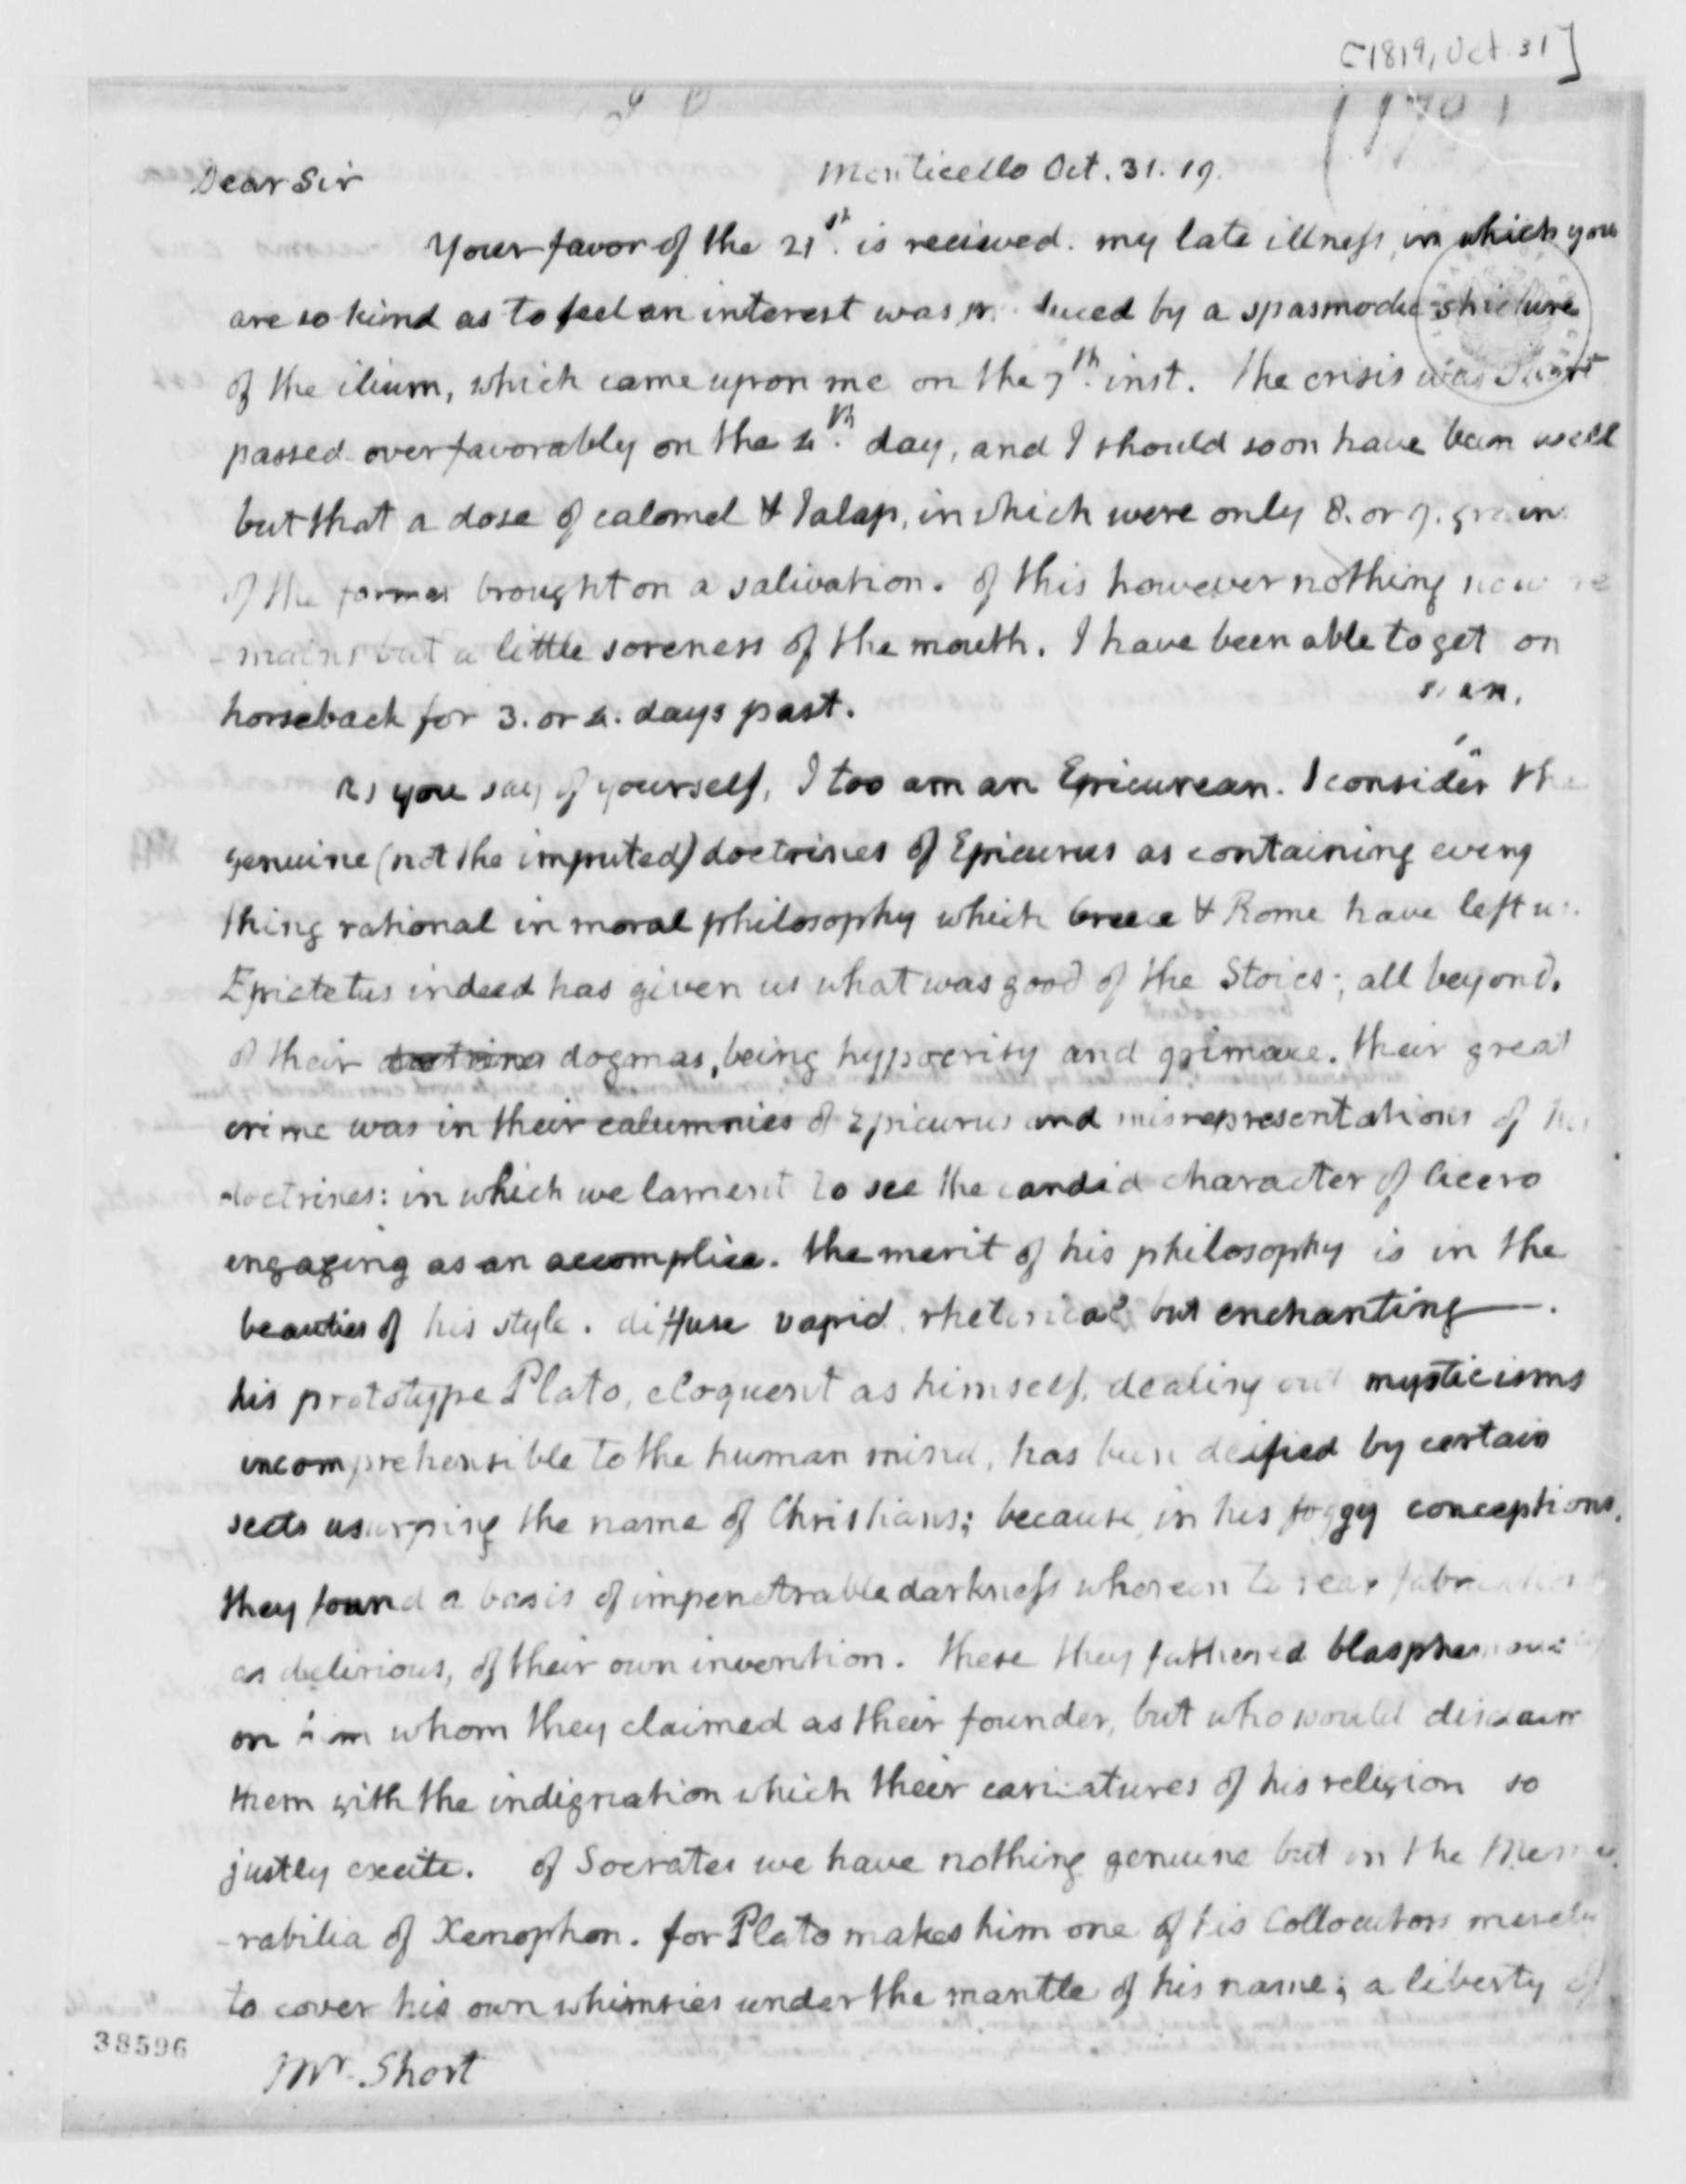 [1819, Oct. 31]
Dear Sir
Monticello Oct. 31. 19.
Your favor of the 21st. is recieved. my late illness, in which you
are so kind as to feel an interest was produced by a spasmodic stricture
of the ilium, which came upon me on the 7th. inst. the crisis was short
passed over favorably on the 4th. day, and I should soon have been well
but that a dose of calomel & Jalap, in which were only 8. or 9. grains
of the former brought on a salivation. of this however nothing now re
-mains but a little soreness of the mouth. I have been able to get on
horseback for 3. or 4. days past.
As you say of yourself, I too am an Epicurean. I consider the
genuine (not the imputed) doctrines of Epicurus as containing every
thing rational in moral philosophy which Greece & Rome have left us.
Epictetus indeed has given us what was good of the Stoics; all beyond,
of their doctrines dogmas, being hypocrisy and grimace. their great
crime was in their calumnies of Epicurus and misrepresentations of his
doctrines: in which we lament to see the candid character of Cicero
engaging as an accomplice. the merit of his philosophy is in the
beauties of his style. diffuse, vapid, rhetorical but enchanting.
his prototype Plato, eloquent as himself, dealing out mysticisms
incomprehensible to the human mind, has been deified by certain
sects usurping the name of Christians; because, in his foggy conceptions,
they found a basis of impenetrable darkness whereon to rear fabrications
as delirious, of their own invention. these they fathered blasphemously
on him whom they claimed as their founder, but who would disclaim
them with the indignation which their caricatures of his religion so
justly excite. of Socrates we have nothing genuine but in the Memo
-rabilia of Xenophon. for Plato makes him one of his Collocutors merely
to cover his own whimsies under the mantle of his name; a liberty of
38596
Mr. Short